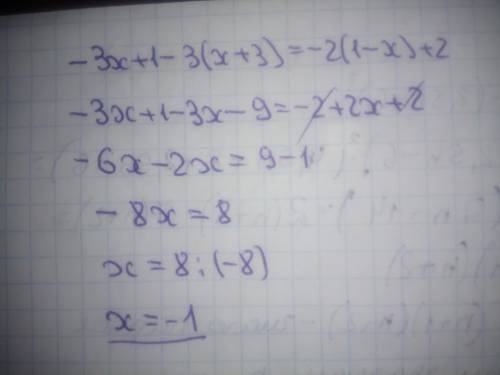 -3x+1-3(x+3)=-2(1-x)+2
-3x+1-3x-9=-2+2x+2
-6x-2x=9-1
-8x=8
x=8:(-8)
x=-1